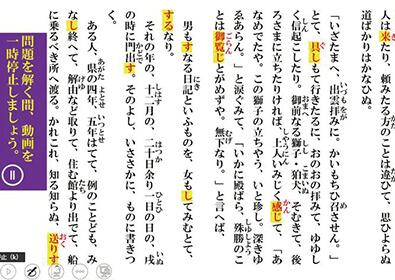 人は来たり、頼みたる方のことは違ひて、思ひよらぬ
道ばかりはかなひぬ。
「いざたまへ、出雲拝みに。かいもちひ召させん。」
とて、具しもて行きたるに、おのおの拝みて、ゆゆし
く信起こしたり。御前なる獅子・狛犬、そむきて、後
ろさまに立ちたりければ、上人いみじく感じて、「あ
なめでたや。この獅子の立ちやう、いと珍し。深きゆ
ゑあらん。」と涙ぐみて、「いかに殿ばら、殊勝のこ
とは御覧じとがめずや。無下なり。」と言へば、
男もすなる日記といふものを、女もしてみむとて、
するなり。
それの年の、十二月の、二十日余り一日の日の、戌
の時に門出す。そのよし、いささかに、ものに書きつ
く。
ある人、県の四年、五年はてて、例のことども、み
なし終へて、解由など取りて、住む館より出でて、船
に乗るべき所へ渡る。かれこれ、知る知らぬ、送りす
問題を解く間、動画を
一時停止しましょう。
止 (k)